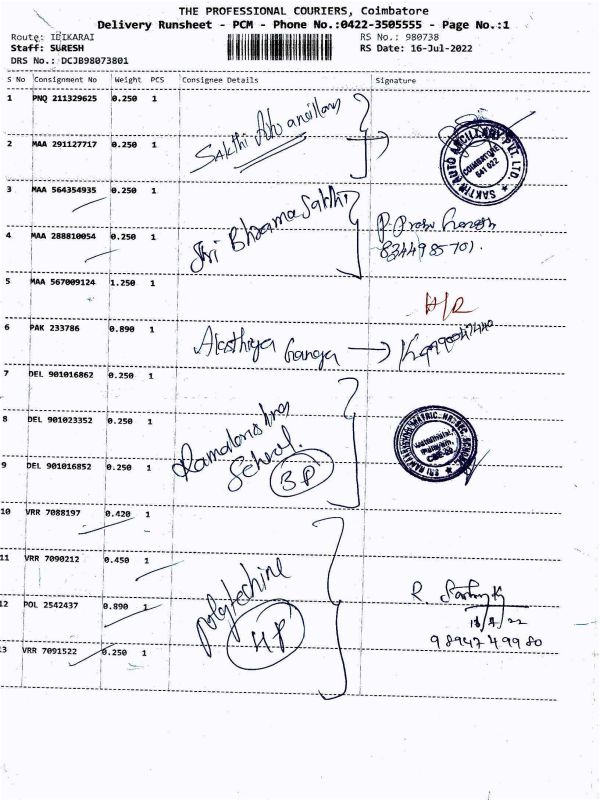 THE PROFESSIONAL COURIERS, Coimbatore
Delivery Runsheet - PCM - Phone No.:0422-3505555 - Page No.:1
Route: IDIKARAI
RS No.: 980738
Staff: SURESH
RS Date: 16-Jul-2022
DRS No.: DCJB98073801
S No Consignment No Weight PCS Consignee Details Signature
1 PNQ 211329625 0.250 1
Sakthi Auto ancillary
2 MAA 291127717 0.250 1
SAKTHI AUTO ANCILLARY PVT. LTD.
COIMBATORE
641 022
3 MAA 564354935 0.250 1
Sri Bhramasakthi
4 MAA 288810054 0.250 1
8344985701.
5 MAA 567009124 1.250 1
6 PAK 233786 0.890 1
Ganga
7 DEL 901016862 0.250 1
8 DEL 901023352 0.250 1
Ramakrishna
School.
3P
9 DEL 901016852 0.250 1
10 VRR 7088197 0.420 1
11 VRR 7090212 0.450 1
polytechnic
12 POL 2542437 0.890 1
4P
9894749980
13 VRR 7091522 0.250 1